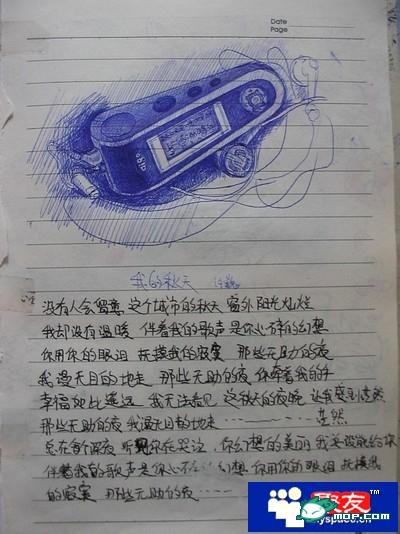 Date
Page
我的秋天 许巍
没有人会留意 这个城市的秋天 窗外阳光灿烂
我却没有温暖 伴着我的歌声 是你心碎的幻想
你用你的眼泪 抚摸我的寂寞 那些无助的夜
我漫无目的地走 那些无助的夜 你牵着我的手
幸福如此遥远 我无法看见 这秋天的夜晚 让我感到茫然
那些无助的夜 我漫无目的地走 …… 茫然
总在每个深夜 听见你在哭泣 你幻想的美丽 我是没能给你
伴着我的歌声 是你心碎 幻想 你用你的眼泪 抚摸我
的寂寞 那些无助的夜 ……
聚友
myspace.cn
MOP.com